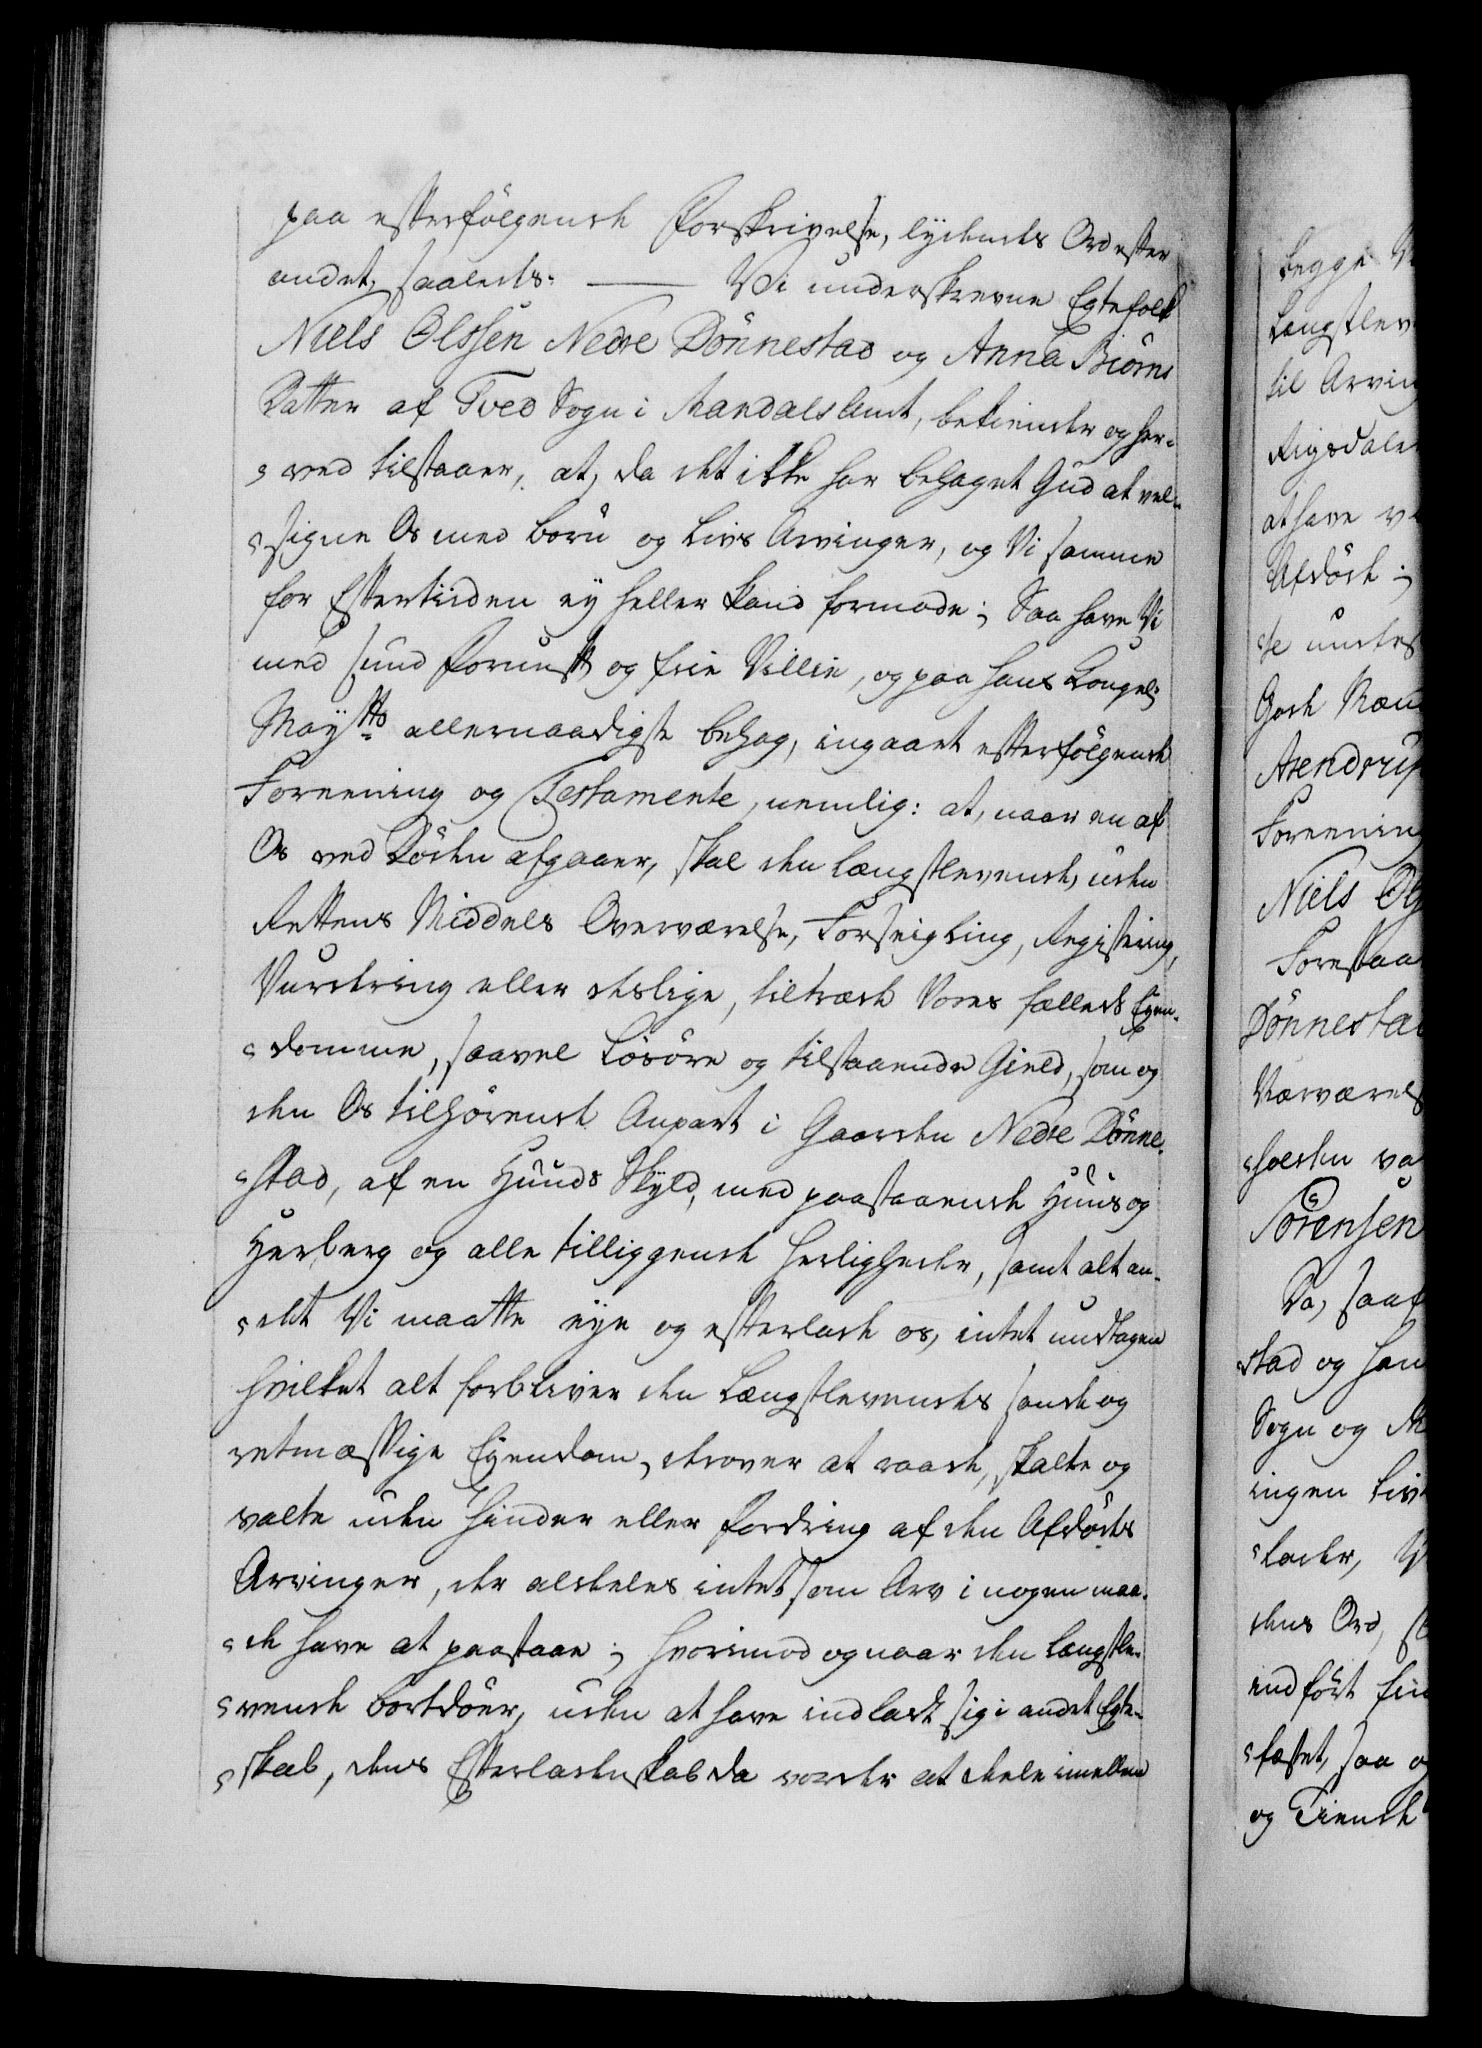 paa efterfölgende Forskrivelse, lydende Ord efter
andet, saaledes: — Vi underskrevne Egtefolk
Niels Olssen Nedre Dönnestad og Anna Biörns
Datter af Tved Sogn i Mandals Amt, bekiender og her-
ved tilstaaer, at, da det ikke har behaget Gud at vel-
signe Os med Börn og Livs Arvinger, og Vi samme
for Eftertiiden ey heller kand formode; Saa have Vi
med sund Fornuft og frie Villie, og paa Hans Kongel:
Maytts allernaadigste behag, ingaaet efterfölgende
Foreening og Testamente, nemlig: at, naar en af
Os ved Döden afgaaer, skal den Længstlevende, uden
Rettens Middels Overværelse, Forseigling, Registering,
Vurdering eller deslige, tiltræde Vores fælleds Eyen-
domme, saavel Lösöre og tilstaaende Gield, som og
den Os tilhörende Anpart i Gaarden Nedre Dönne-
stad, af en Huuds Skyld, med paastaaende Huus og
Herberg og alle tilliggende Herligheder, samt alt an-
det Vi maatte eye og efterlade os, intet undtagen
hvilket alt forbliver den Længstlevendes sande og
retmæssige Eyendom, derover at raade, skalte og
valte uden Hinder eller Fordring af den Afdödes
Arvinger, der aldeles intet som Arv i nogen maa-
de have at paastaae; hvorimod og naar den Længstle-
vende bortdöer, uden at have indladt sig i andet Egte-
skab, dens Efterladenskab da vorder at dele imellem
begge
Længstlev
til Arving
Rigsdaler
at have
Afdöde;
se
Gode
Arendrup
Foreening
Niels Ols
Forestaa
Dönnestad
Nærværels
holden
Sörensen
Da, saaf
stad og han
Sogn og
ingen Liv
lader,
dens Ord,
indfört
fæstet, saa
og Tiende